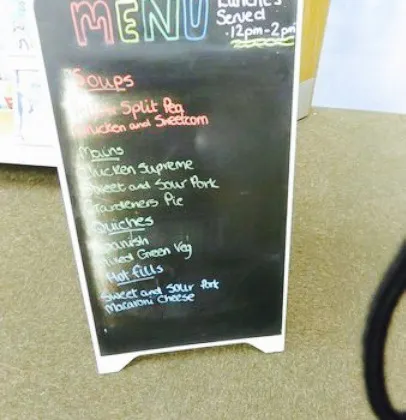 MENU
Lunches
Served
12pm-2pm
Soups
Split Pea
Chicken and Sweetcorn
Mains
Chicken Supreme
Sweet and Sour Pork
Gardeners Pie
Quiches
Spanish
Mixed Green Veg
Hot fills
Sweet and Sour Pork
Macaroni Cheese